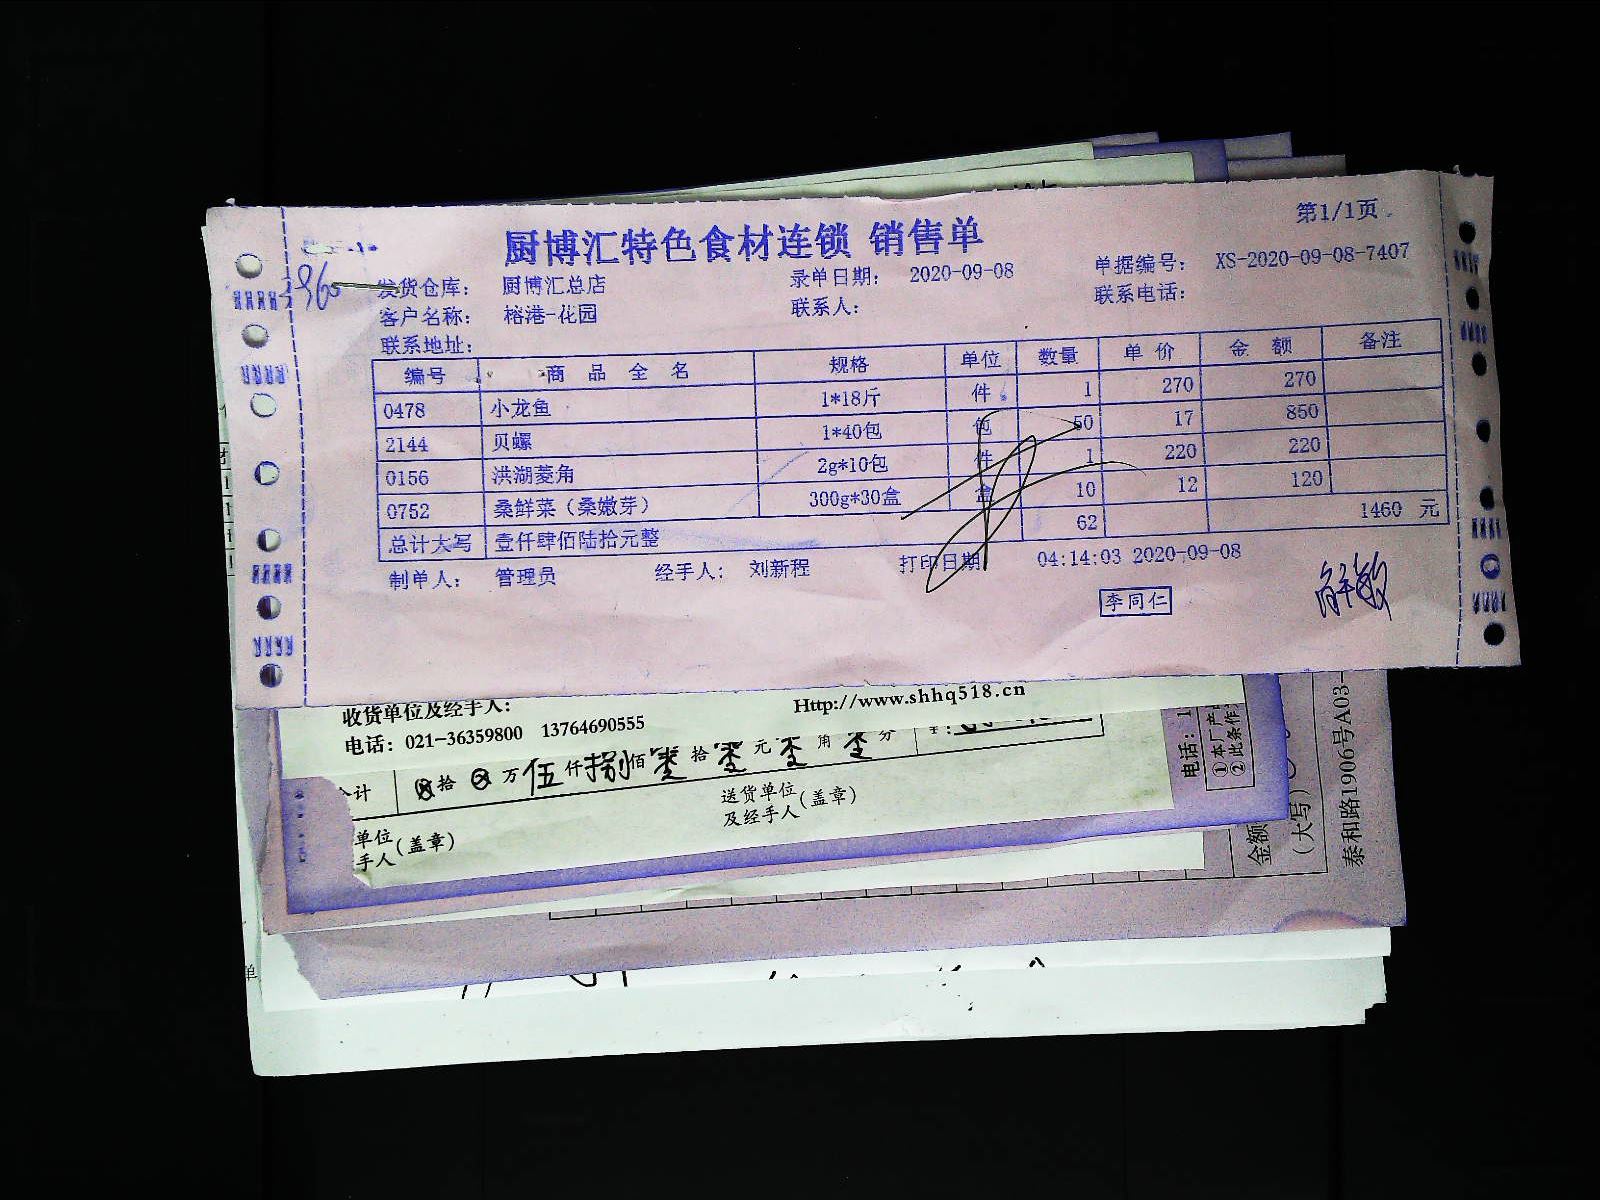 厨博汇特色食材连锁 销售单
第1/1页
发货仓库： 厨博汇总店 录单日期： 2020-09-08 单据编号： XS-2020-09-08-7407
客户名称： 榕港-花园 联系人： 联系电话：
联系地址：
编号 商 品 全 名 规格 单位 数量 单 价 金 额 备注
0478 小龙鱼 1*18斤 件 1 270 270
2144 贝螺 1*40包 包 50 17 850
0156 洪湖菱角 2g*10包 件 1 220 220
0752 桑鲜菜（桑嫩芽） 300g*30盒 盒 10 12 120
总计大写 壹仟肆佰陆拾元整 62 1460 元
制单人： 管理员 经手人： 刘新程 打印日期 04:14:03 2020-09-08
李同仁
收货单位及经手人：
Http://www.shhq518.cn
电话：021-36359800 13764690555
合计 拾 万 伍 仟 捌 佰 零 拾 零 元 零 角 零 分
送货单位
及经手人(盖章)
单位
手人(盖章)
电话：1
①本厂产
②此条作
金额
(大写)
泰和路1906号A03-